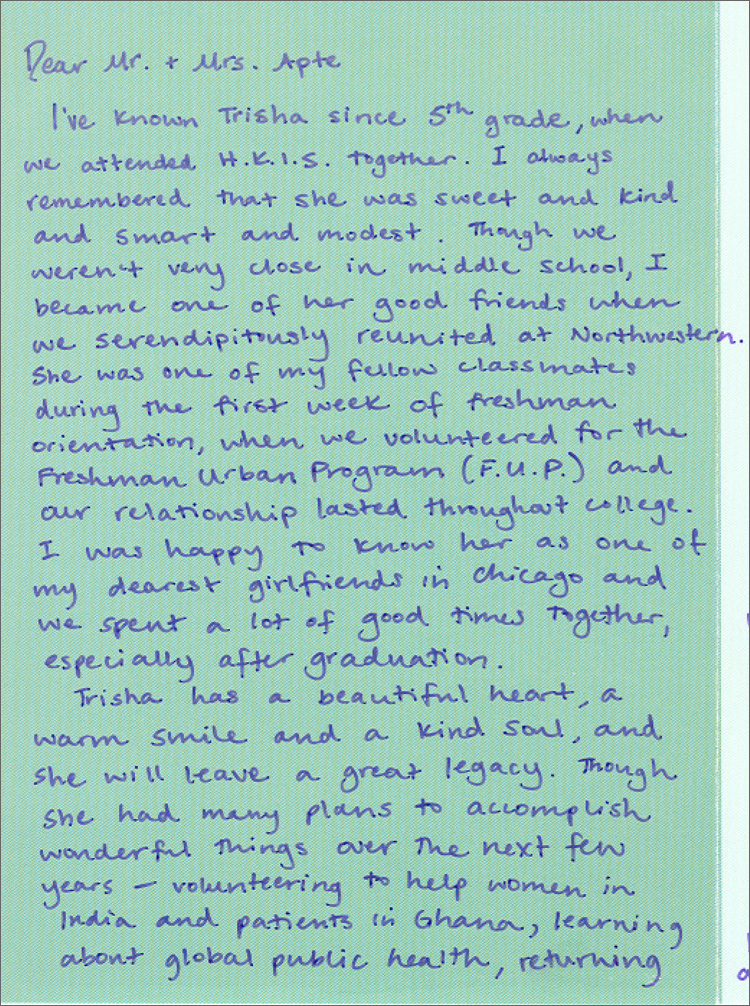 Dear Mr. + Mrs. Apte
I've known Trisha since 5th grade, when
we attended H.K.I.S. together. I always
remembered that she was sweet and kind
and smart and modest. Though we
weren't very close in middle school, I
became one of her good friends when
we serendipitously reunited at Northwestern.
She was one of my fellow classmates
during the first week of freshman
orientation, when we volunteered for the
Freshman Urban Program (F.U.P.) and
our relationship lasted throughout college.
I was happy to know her as one of
my dearest girlfriends in Chicago and
we spent a lot of good times together,
especially after graduation.
Trisha has a beautiful heart, a
warm smile and a kind soul, and
she will leave a great legacy. Though
she had many plans to accomplish
wonderful things over the next few
years – volunteering to help women in
India and patients in Ghana, learning
about global public health, returning